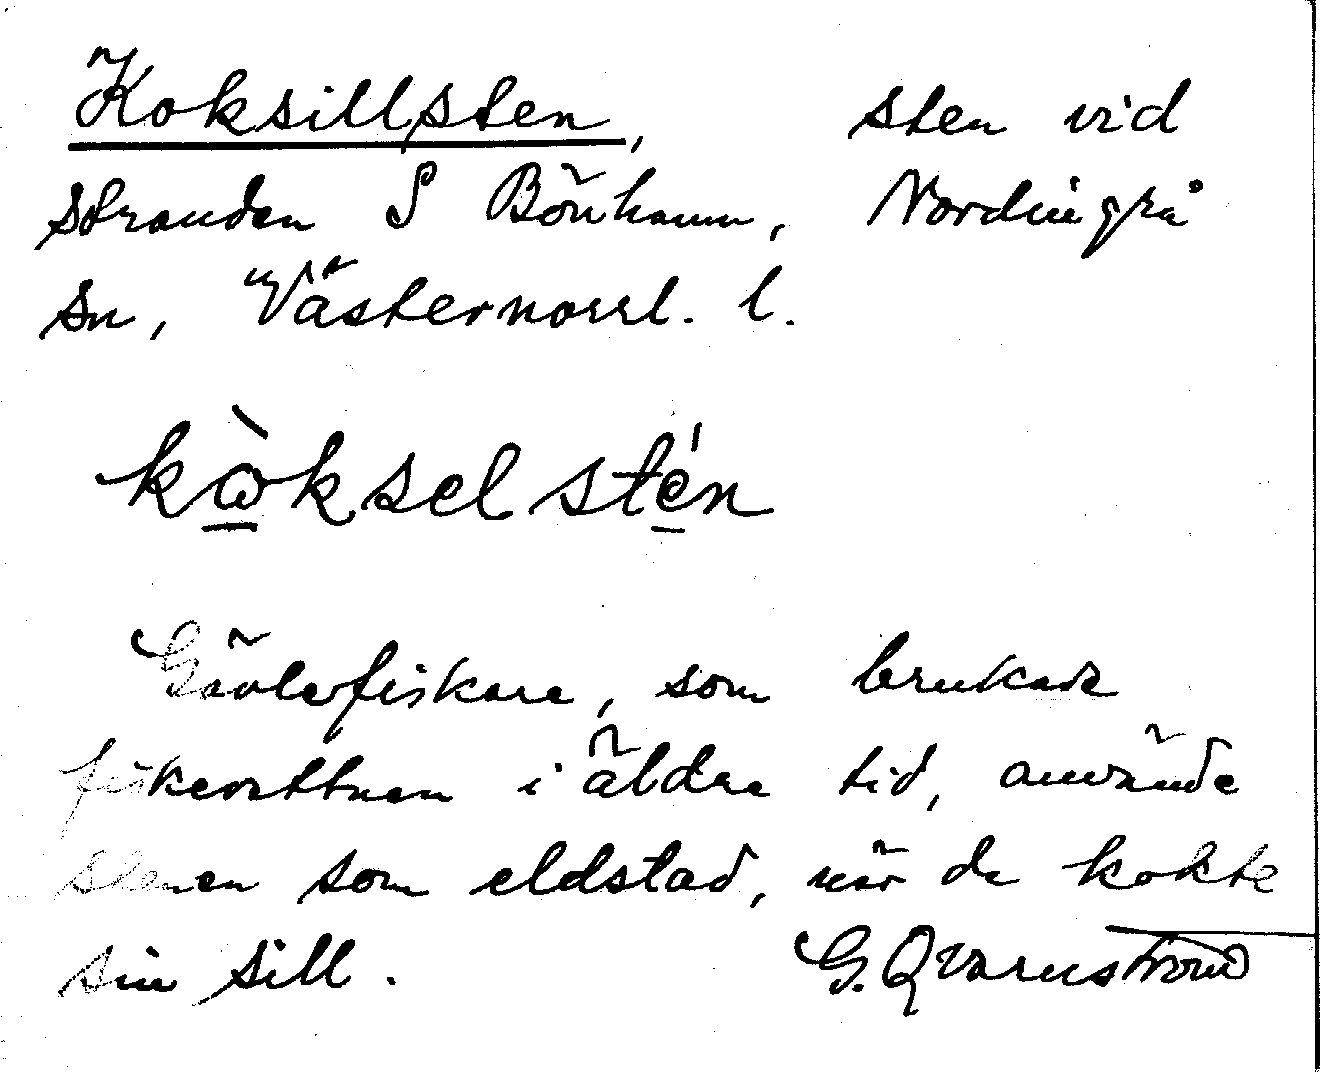 Koksillsten, sten vid
stranden S Bönhamn, Nordingrå
sn, Västernorrl. l.
kὼ̲kselsté̲n
Gävlefiskare, som brukade
fiskerättnen i äldre tid, använde
stenen som eldstad, när de kokte
sin sill. G. Qvarnström